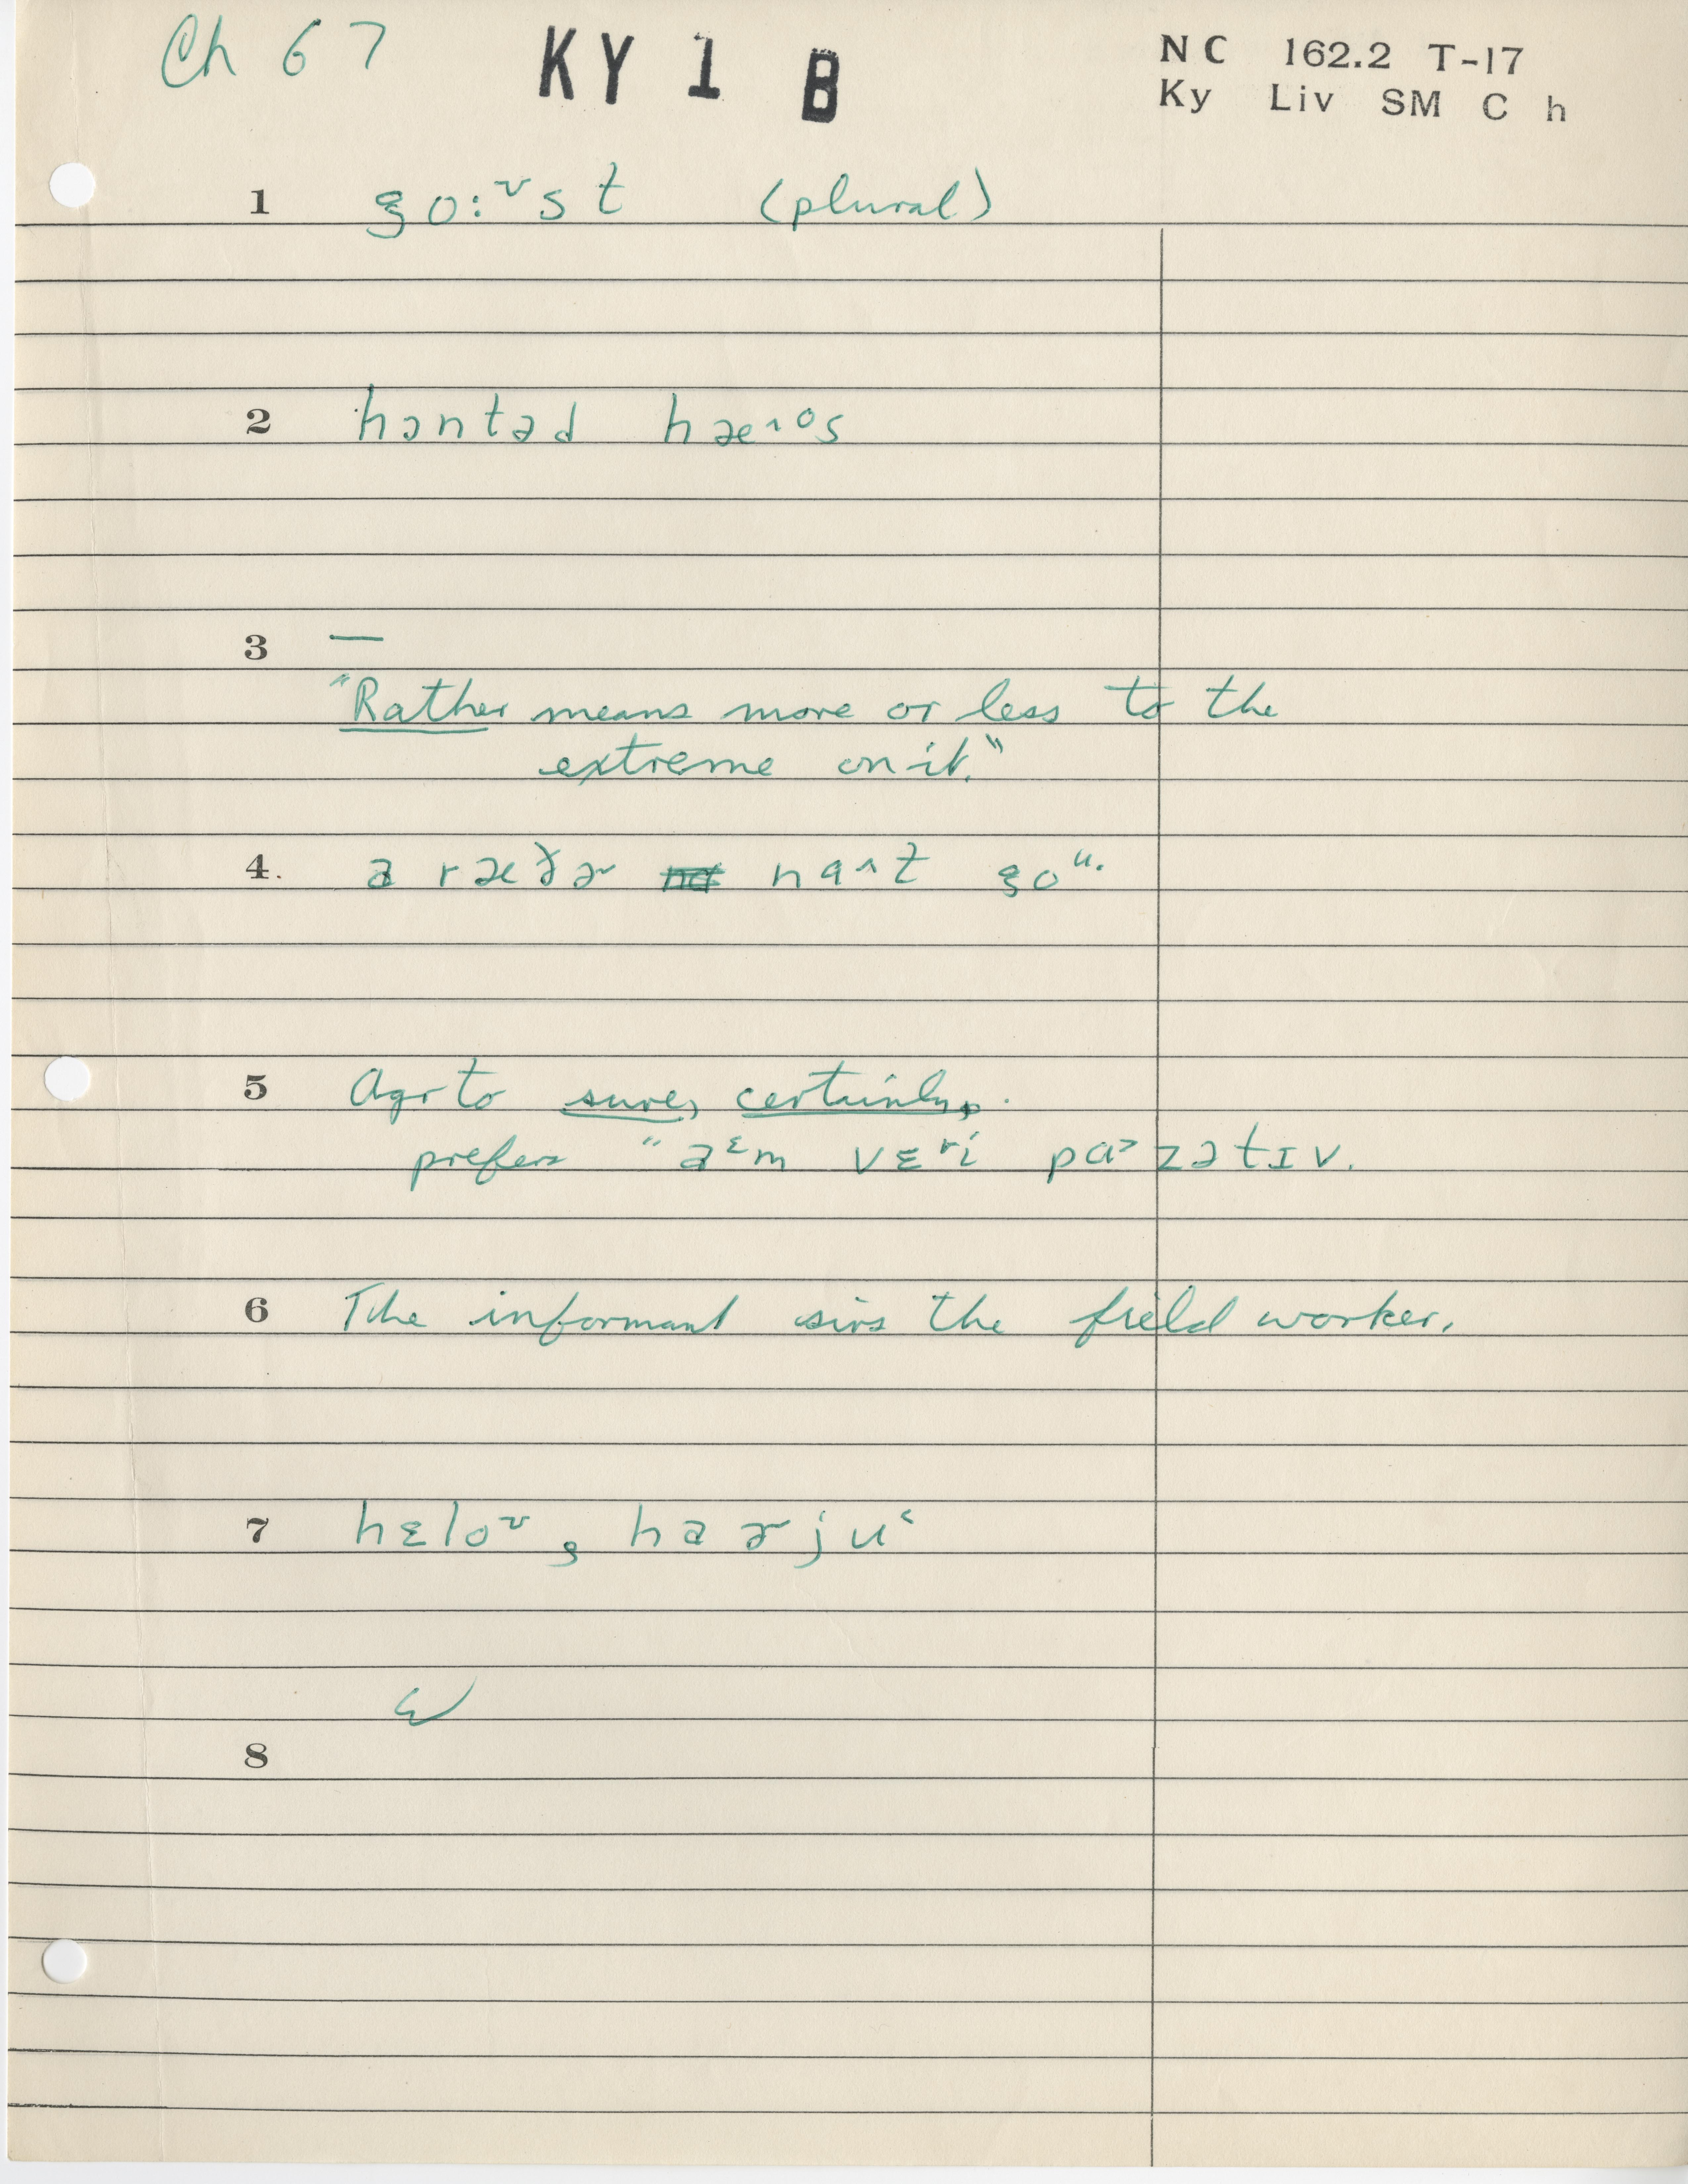 Ch 67 KY 1 B NC 162.2 T-17
Ky Liv SM C h
1 go:ᶷst (plural)
2 hɔntəd hæ˄ᵒs
3 —
"Rather means more or less to the
extreme on it."
4. a ræðɚ na˄t goᵘ·
5 Agr to sure, certainly,
prefers "aᵋm vɛri pɑ˃zətɪv.
6 The informant sirs the field worker.
7 hɛloᶷ, haɚju˂
8